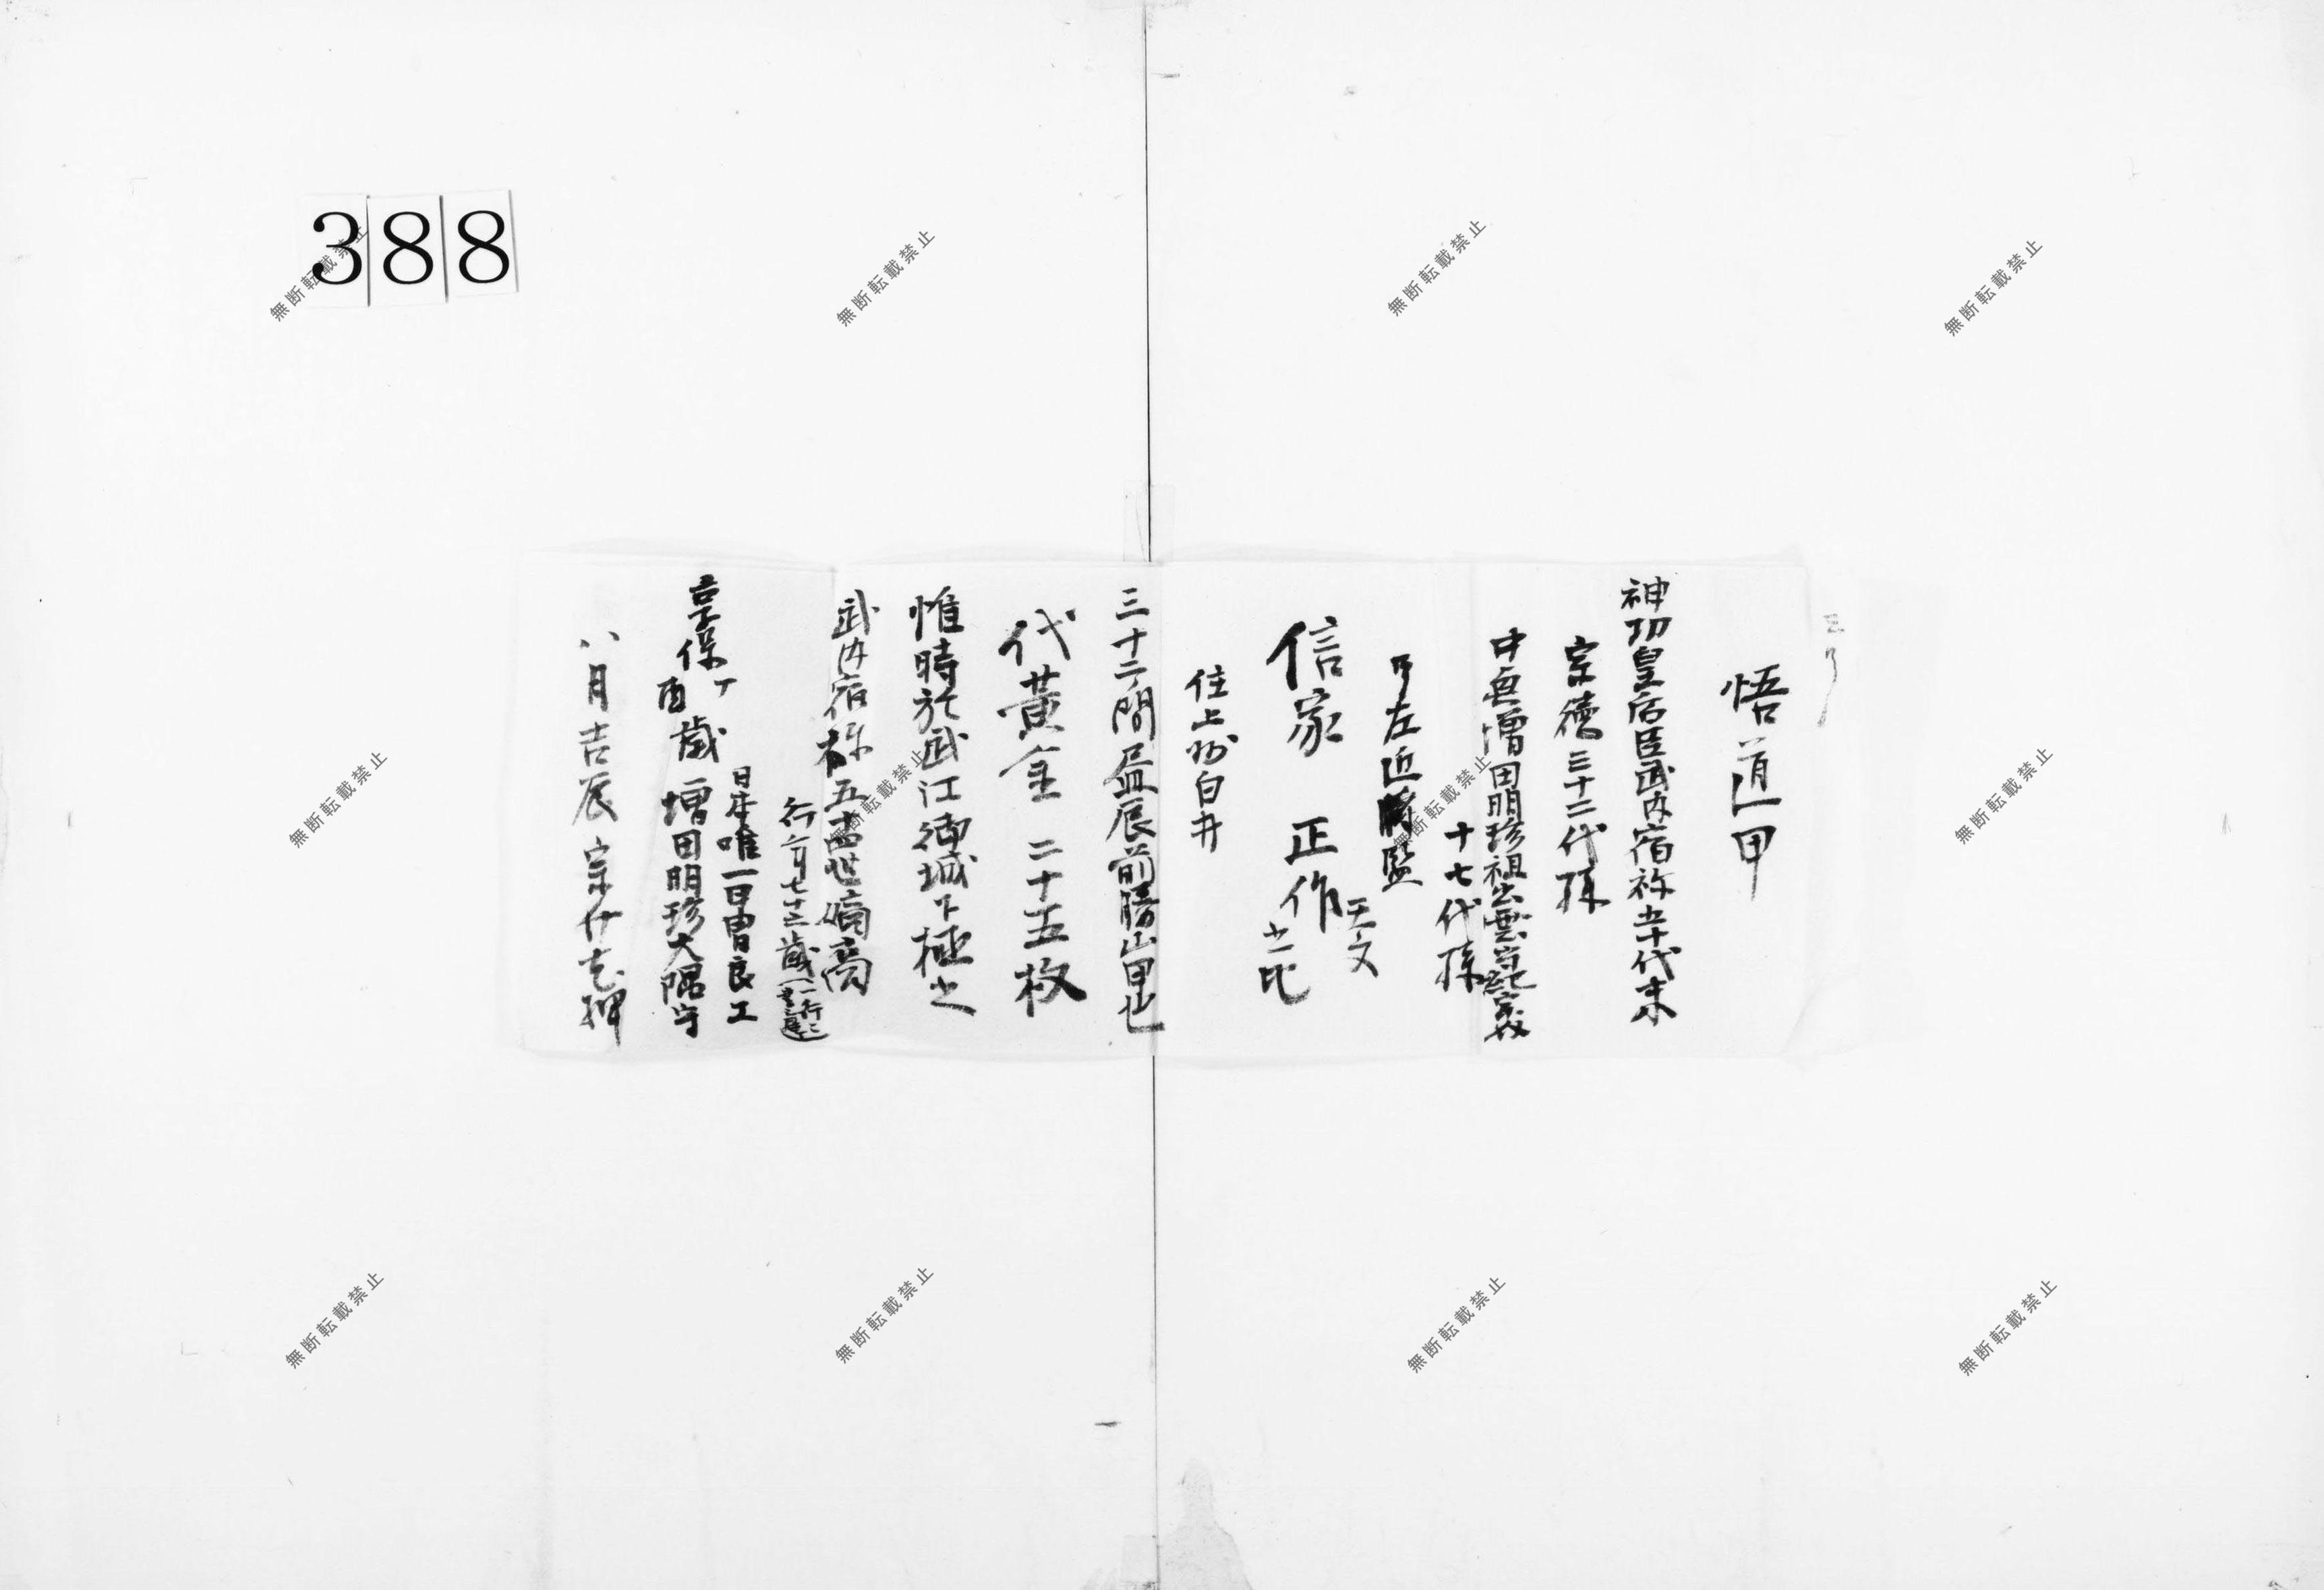 388
悟道甲
神功皇后臣武内宿祢五十代末
宗徳三十二代孫
中興増田明珍祖出雲守紀宗義
十七代孫
左近将監
信家 正作 天文
之比
住上州白井
三十二間
辰前勝山
代黄金 二十五枚
惟時於武江御城下極之
武内宿祢五
世嫡高
行年七十二歳
日本唯一
良工
享保丁
酉歳 増田明珍大隅守
八月吉辰 宗介 花押
無断転載禁止
無断転載禁止
無断転載禁止
無断転載禁止
無断転載禁止
無断転載禁止
無断転載禁止
無断転載禁止
無断転載禁止
無断転載禁止
無断転載禁止
無断転載禁止